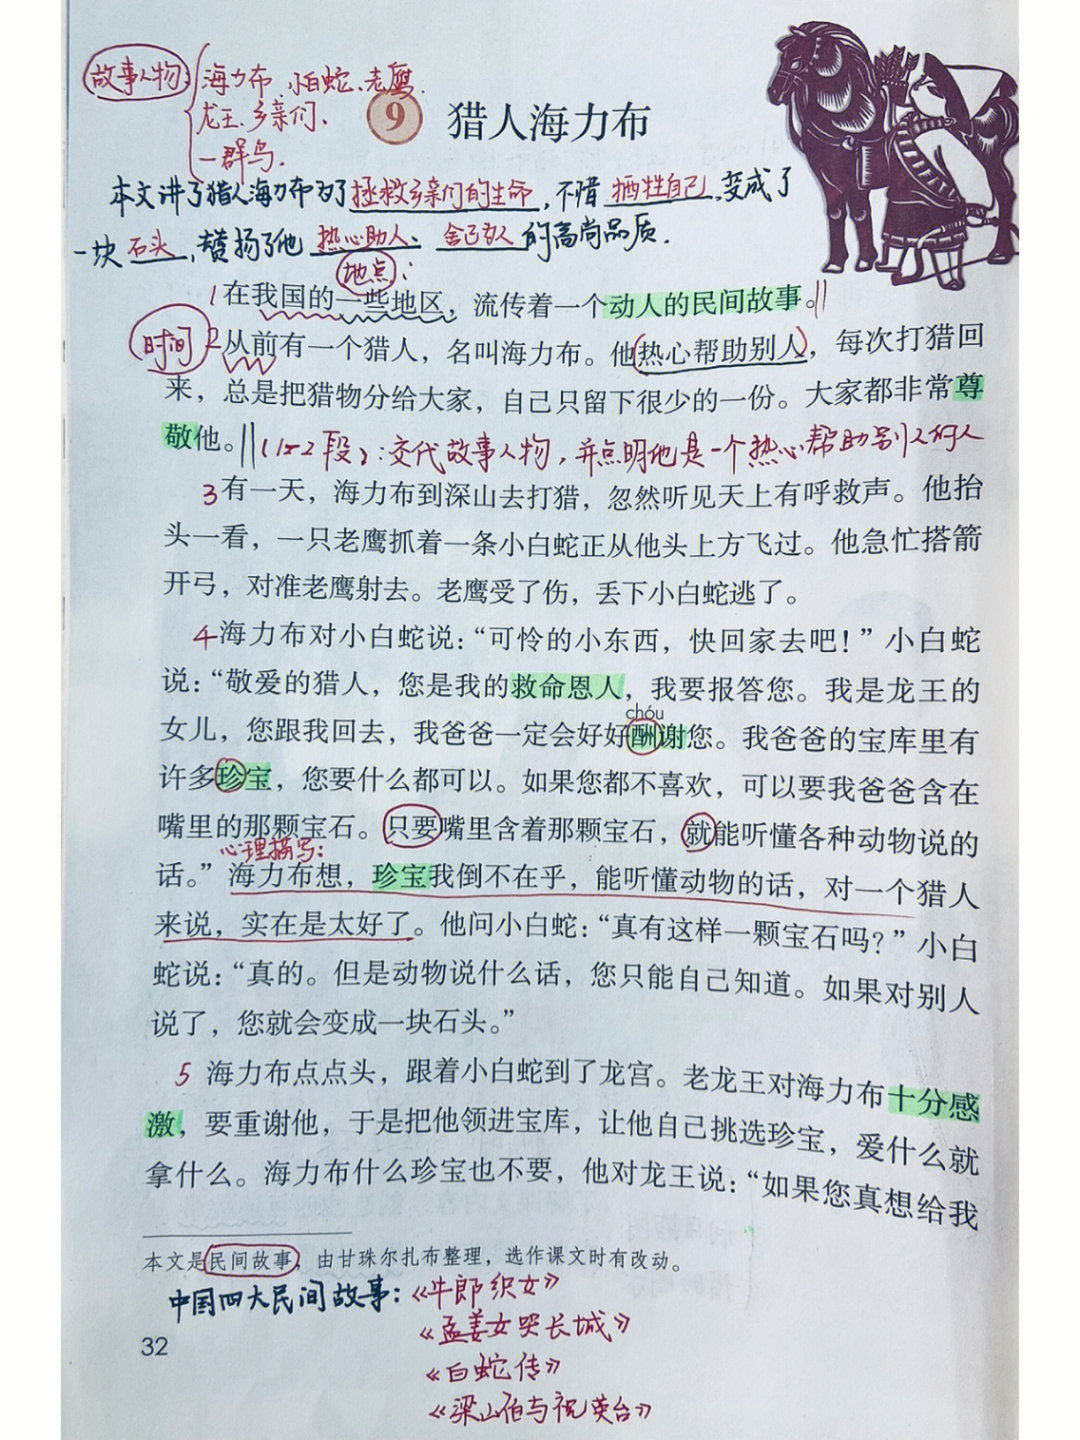 故事人物 海力布、小白蛇、老鹰、
龙王、乡亲们、
一群鸟.
9 猎人海力布
本文讲了猎人海力布为了拯救乡亲们的生命,不惜牺牲自己,变成了
一块石头,赞扬了他热心助人、舍己救人的高尚品质.
地点:
1在我国的一些地区，流传着一个动人的民间故事。
时间 2从前有一个猎人，名叫海力布。他热心帮助别人，每次打猎回
来，总是把猎物分给大家，自己只留下很少的一份。大家都非常尊
敬他。(1~2段):交代故事人物,并点明他是一个热心帮助别人的人
3有一天，海力布到深山去打猎，忽然听见天上有呼救声。他抬
头一看，一只老鹰抓着一条小白蛇正从他头上方飞过。他急忙搭箭
开弓，对准老鹰射去。老鹰受了伤，丢下小白蛇逃了。
4海力布对小白蛇说：“可怜的小东西，快回家去吧！”小白蛇
说：“敬爱的猎人，您是我的救命恩人，我要报答您。我是龙王的
chóu
女儿，您跟我回去，我爸爸一定会好好酬谢您。我爸爸的宝库里有
许多珍宝，您要什么都可以。如果您都不喜欢，可以要我爸爸含在
嘴里的那颗宝石。只要嘴里含着那颗宝石，就能听懂各种动物说的
心理描写:
话。”海力布想，珍宝我倒不在乎，能听懂动物的话，对一个猎人
来说，实在是太好了。他问小白蛇：“真有这样一颗宝石吗？”小白
蛇说：“真的。但是动物说什么话，您只能自己知道。如果对别人
说了，您就会变成一块石头。”
5 海力布点点头，跟着小白蛇到了龙宫。老龙王对海力布十分感
激，要重谢他，于是把他领进宝库，让他自己挑选珍宝，爱什么就
拿什么。海力布什么珍宝也不要，他对龙王说：“如果您真想给我
本文是民间故事，由甘珠尔扎布整理，选作课文时有改动。
中国四大民间故事:《牛郎织女》
《孟姜女哭长城》
32
《白蛇传》
《梁山伯与祝英台》